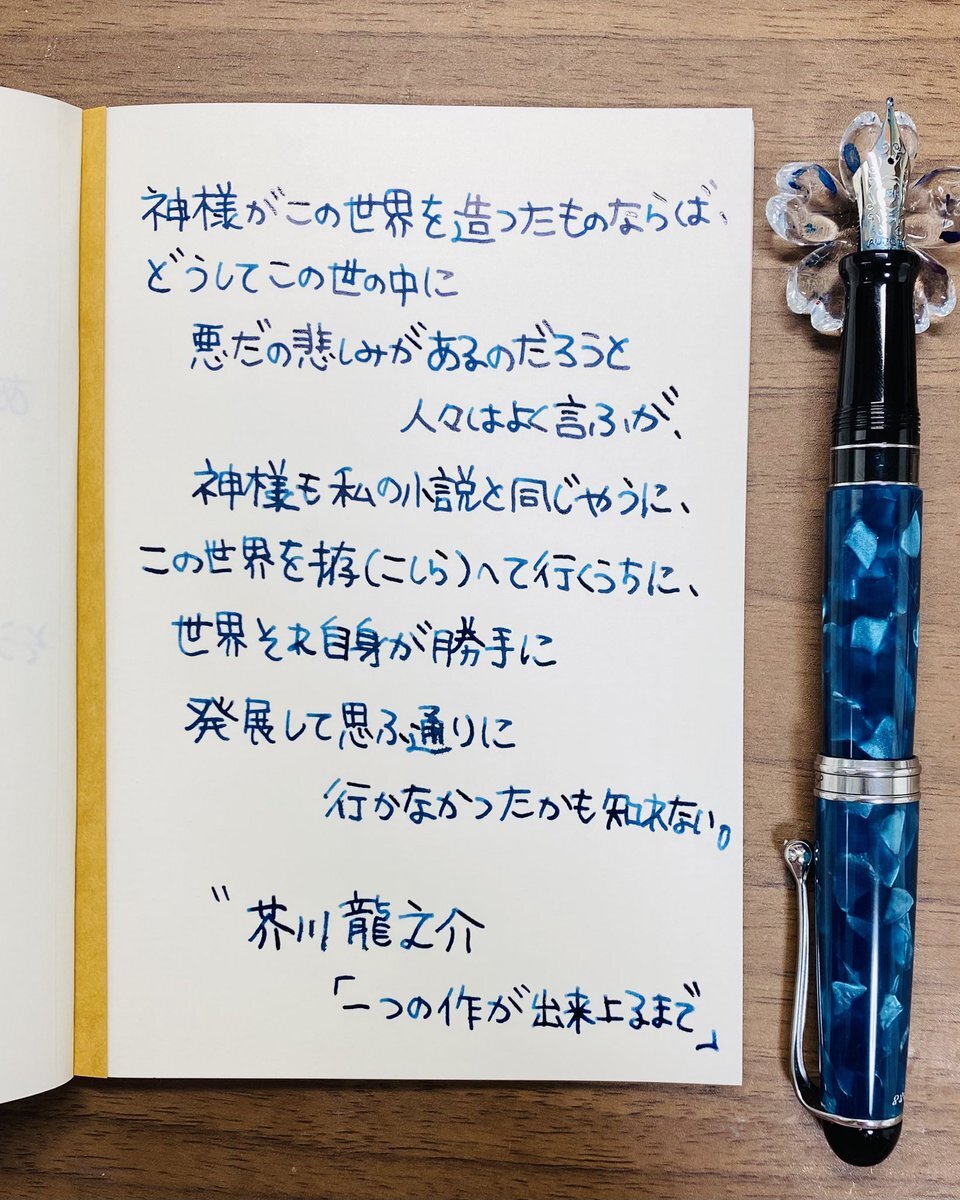 神様がこの世界を造つたものならば、
どうしてこの世の中に
悪だの悲しみがあるのだろうと
人々はよく言ふが、
神様も私の小説と同じやうに、
この世界を拵(こしら)へて行くうちに、
世界それ自身が勝手に
発展して思ふ通りに
行かなかつたかも知れない。
〃芥川龍之介
「一つの作が出来上るまで」